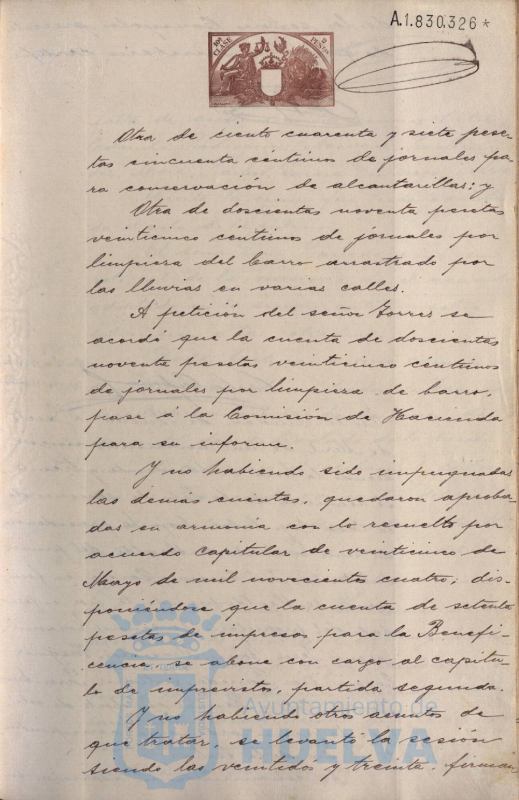 A.1.830.326*
10ª CLASE
2 PESETAS
Otra de ciento cuarenta y siete pese-
tas cincuenta céntimos de jornales pa-
ra conservación de alcantarillas; y
Otra de doscientas noventa pesetas
veinticinco céntimos de jornales por
limpieza del barro arrastrado por
las lluvias en varias calles.
A petición del señor Torres se
acordó que la cuenta de doscientas
noventa pesetas veinticinco céntimos
de jornales por limpieza de barro,
pase á la Comisión de Hacienda
para su informe.
Y no habiendo sido impugnadas
las demás cuentas, quedaron aproba-
das en armonía con lo resuelto por
acuerdo capitular de veinticinco de
Mayo de mil novecientos cuatro; dis-
poniéndose que la cuenta de setenta
pesetas de impresos para la Benefi-
cencia, se abone con cargo al capítu-
lo de imprevistos, partida segunda.
Y no habiendo otros asuntos de
que tratar, se levantó la sesión
siendo las veintidós y treinta, firman
Ayuntamiento de
HUELVA